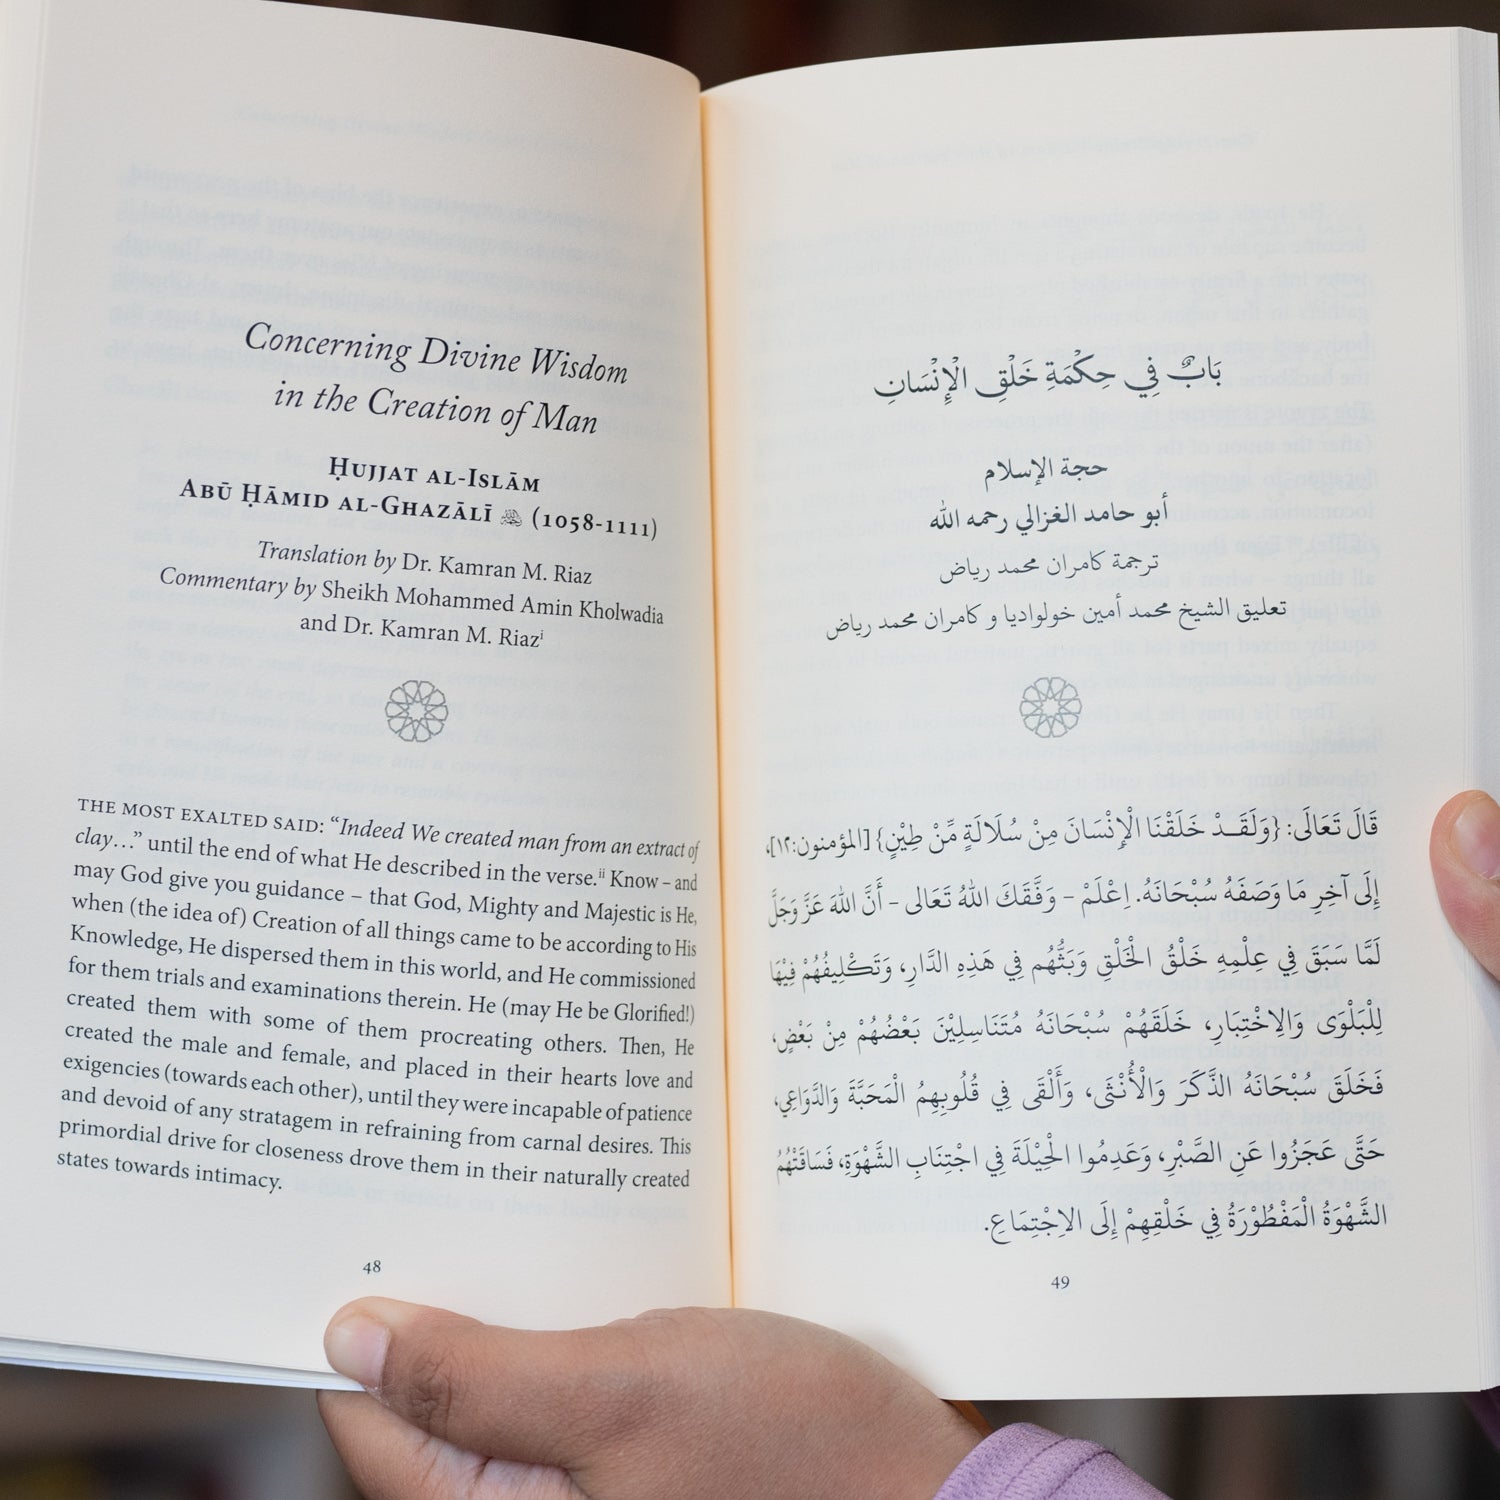 Concerning Divine Wisdom
in the Creation of Man
Ḥujjat al-Islām
Abū Ḥāmid al-Ghazālī (1058-1111)
Translation by Dr. Kamran M. Riaz
Commentary by Sheikh Mohammed Amin Kholwadia
and Dr. Kamran M. Riazⁱ
THE MOST EXALTED SAID: “Indeed We created man from an extract of
clay…” until the end of what He described in the verse.ⁱⁱ Know – and
may God give you guidance – that God, Mighty and Majestic is He,
when (the idea of) Creation of all things came to be according to His
Knowledge, He dispersed them in this world, and He commissioned
for them trials and examinations therein. He (may He be Glorified!)
created them with some of them procreating others. Then, He
created the male and female, and placed in their hearts love and
exigencies (towards each other), until they were incapable of patience
and devoid of any stratagem in refraining from carnal desires. This
primordial drive for closeness drove them in their naturally created
states towards intimacy.
48
بَابٌ فِي حِكْمَةِ خَلْقِ الْإِنْسَانِ
حجة الإسلام
أبو حامد الغزالي رحمه الله
ترجمة كامران محمد رياض
تعليق الشيخ محمد أمين خولواديا و كامران محمد رياض
قَالَ تَعَالَى: {وَلَقَدْ خَلَقْنَا الْإِنْسَانَ مِنْ سُلَالَةٍ مِّنْ طِيْنٍ} [المؤمنون:١٢]،
إِلَى آخِرِ مَا وَصَفَهُ سُبْحَانَهُ. اِعْلَمْ – وَفَّقَكَ اللهُ تَعَالى – أَنَّ اللهَ عَزَّ وَجَلَّ
لَمَّا سَبَقَ فِي عِلْمِهِ خَلْقُ الْخَلْقِ وَبَثُّهُم فِي هَذِهِ الدَّارِ، وَتَكْلِيفُهُمْ فِيْهَا
لِلْبَلْوَى وَالِاخْتِبَارِ، خَلَقَهُمْ سُبْحَانَهُ مُتَنَاسِلِيْنَ بَعْضُهُمْ مِنْ بَعْضٍ،
فَخَلَقَ سُبْحَانَهُ الذَّكَرَ وَالْأُنْثَى، وَأَلْقَى فِي قُلُوبِهِمُ الْمَحَبَّةَ وَالدَّوَاعِي،
حَتَّى عَجَزُوا عَنِ الصَّبْرِ، وَعَدِمُوا الْحِيْلَةَ فِي اجْتِنَابِ الشَّهْوَةِ، فَسَاقَتْهُمُ
الشَّهْوَةُ الْمَفْطُوْرَةُ فِي خَلْقِهِمْ إِلَى الاِجْتِمَاعِ.
49